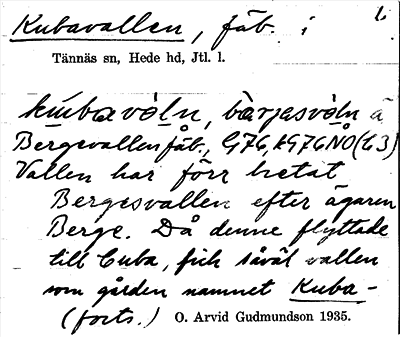 Kubavallen, fäb. i
Tännäs sn, Hede hd, Jtl. l.
Bergsvallen fäb.,
Vallen har förr hetat
Bergesvallen efter ägaren
Berge. Då denne flyttade
till Cuba, fick såväl vallen
som gården namnet Kuba-
(forts.) O. Arvid Gudmundson 1935.